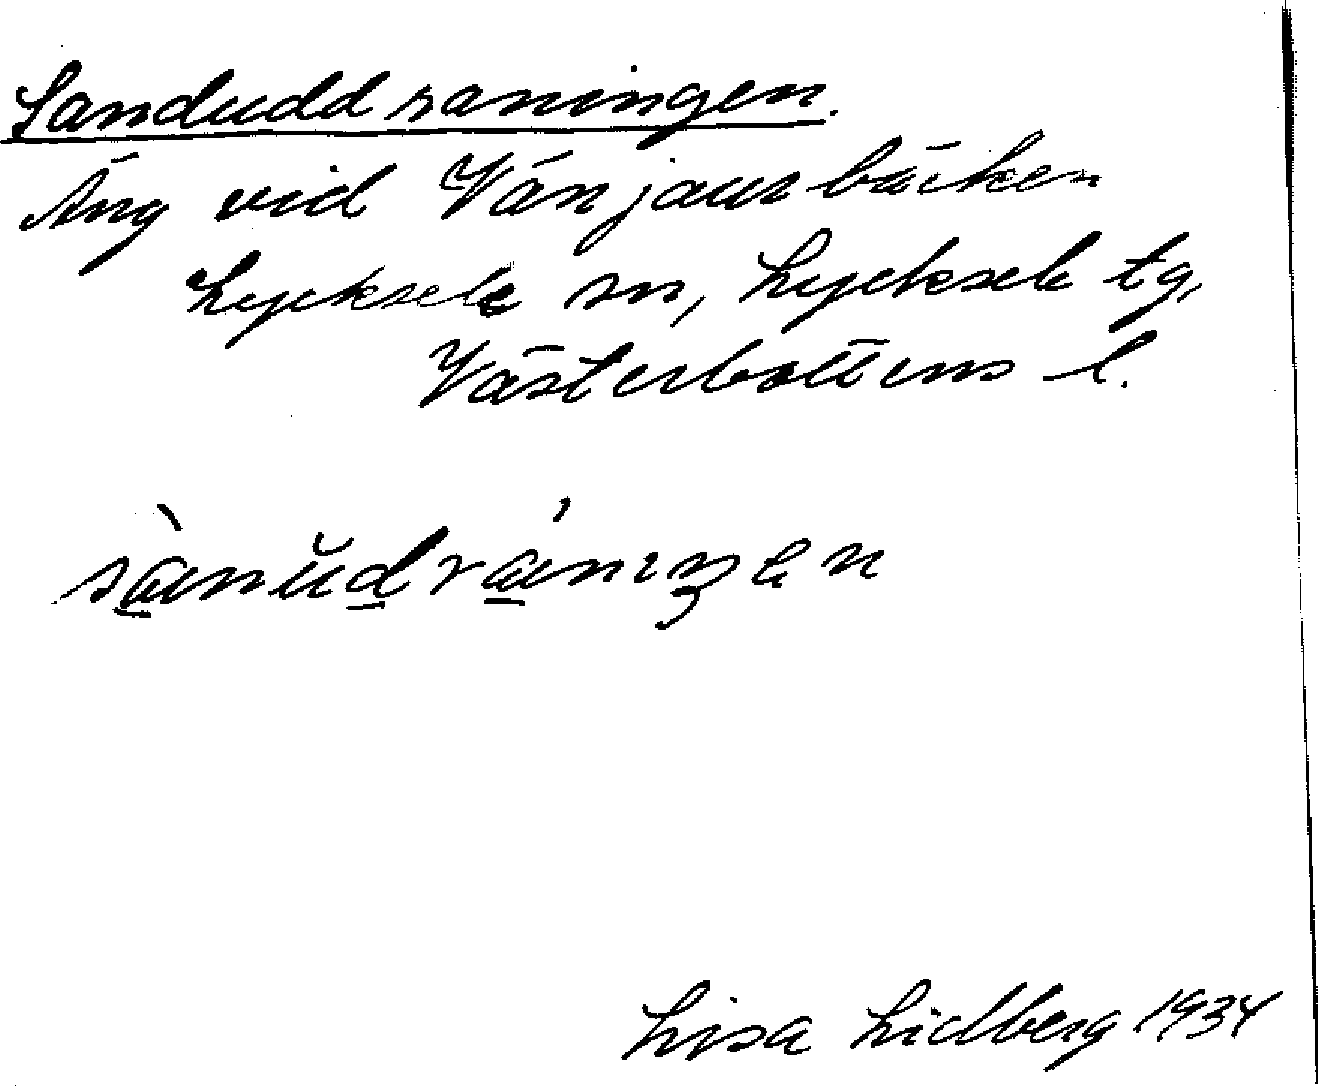 Sanduddraningen.
Äng vid Vänjaurbäcken
Lycksele sn, Lycksele tg,
Västerbottens l.
sànŭd̲rániŋen
Lisa Lidberg 1934